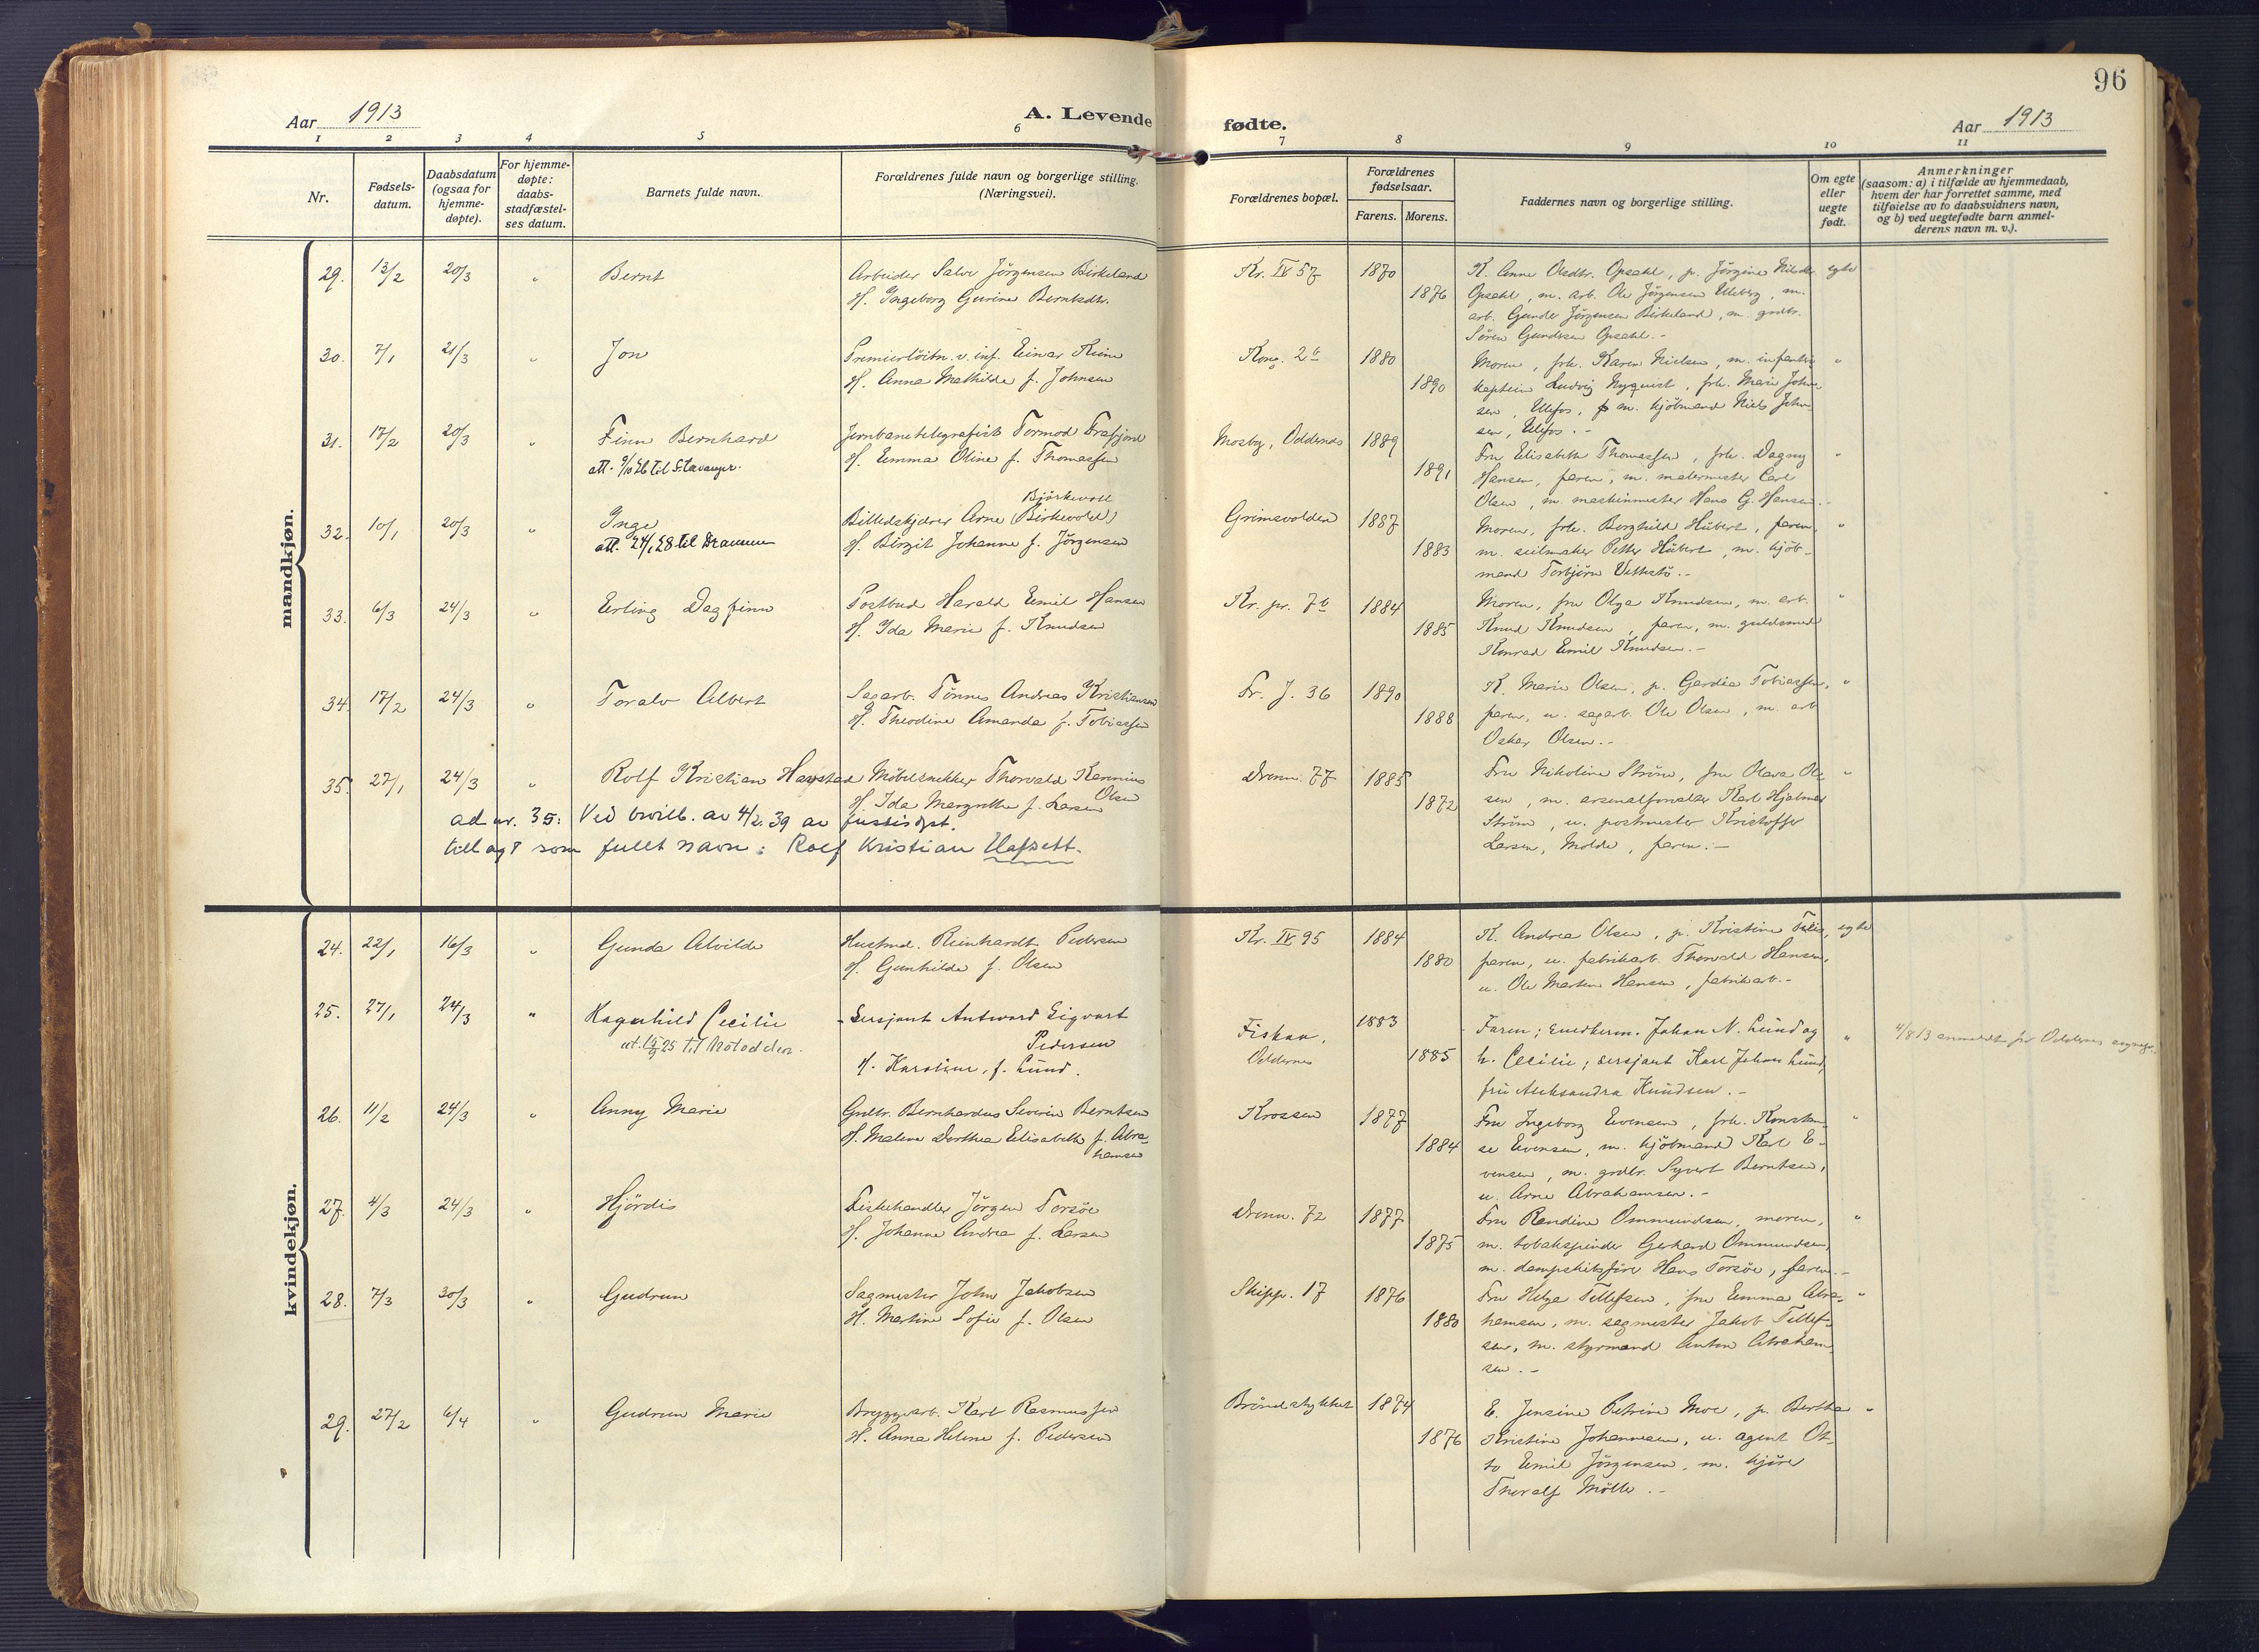 96
Aar 1913
A. Levende fødte.
Aar 1913
1 2 3 4 5 6 7 8 9 10 11
Nr.
Fødsels-
datum.
Daabsdatum
(ogsaa for
hjemme-
døpte).
For hjemme-
døpte:
daabs-
stadfæstel-
ses datum.
Barnets fulde navn.
Forældrenes fulde navn og borgerlige stilling.
(Næringsvei).
Forældrenes bopæl.
Forældrenes
fødselsaar.
Farens. Morens.
Faddernes navn og borgerlige stilling.
Om egte
eller
uegte
født.
Anmerkninger
(saasom: a) i tilfælde av hjemmedaab,
hvem der har forrettet samme, med
tilføielse av to daabsvidners navn,
og b) ved uegtefødte barn anmel-
derens navn m. v.).
mandkjøn.
29. 13/2 20/3 " Bernt
Arbeider Salve Jörgensen Birkeland
H. Ingeborg Gurine Berntsdtr.
Kr. IV 57 1870
1876
K. Anne Olsdtr. Opsahl, p. Jörgine Nilsdtr. egte
Opsahl, m. arb. Ole Jörgensen Ulleberg, m.
arb. Gunder Jörgensen Birkeland, m. grdbr.
Sören Gundersen Opsahl.-
30. 7/1 21/3 " Jon
Premierløitn. v. inf. Einar
H. Anna Mathilde f. Johnsen
Kong. 2b 1880
1890
Moren, frk. Karen Nielsen, m. infanteri "
kaptein Ludvig Nyquist, frk. Marie John-
sen, Ulefos, m. kjöbmand Niels John-
sen, Ulefos.-
31. 17/2 20/3 " Finn Bernhard
att. 9/10 26 til Stavanger.
Jernbanetelegrafist Tormod Frafjord
H. Emma Oline f. Thomassen
Mosby, Oddernes 1889
1891
Fru Elisabeth Thomassen, frk. Dagny "
Hansen, faren, m. malermester Carl
Olsen, m. maskinmester Hans G. Hansen.-
32. 10/1 20/3 " Inge
att. 24/1 28 til Drammen
Björkevoll
Billedskjærer Arne (Birkevold)
H. Birgit Johanne f. Jörgensen
Grimsvolden 1887
1883
Moren, frk. Borghild Hübert, faren, "
m. seilmaker Petter Hübert, m. kjöb-
mand Torbjörn Vethstö.-
33. 6/3 24/3 " Erling Dagfinn
Postbud Harald Emil Hansen
H. Ida Marie f. Knudsen
Kr. pr. 7b 1884
1885
Moren, fru Olga Knudsen, m. arb. "
Knud Knudsen, faren, m. guldsmed
Konrad Emil Knudsen.-
34. 17/2 24/3 " Toralv Albert
Sagarb. Tönnes Andreas Kristiansen
H. Theodine Amanda f. Tobiassen
Fr. J. 36 1890
1888
K. Marie Olsen, p. Gerdia Tobiassen, "
faren, u. sagarb. Ole Olsen, m. arb.
Oskar Olsen.-
35. 27/1 24/3 " Rolf Kristian Havstad
Möbelsnekker Thorvald Karenius
Olsen
H. Ida Margrethe f. Larsen
Dronn. 77 1885
1872
Fru Nikoline Ström, fru Olava Ol- "
sen, m. arsenalforvalter Karl Hjalmar
Ström, u. postmester Kristoffer
Larsen, Molde, faren.-
ad nr. 35: Ved bevilb. av 4/2.39 av justisdpt.
tillagt som fullt navn: Rolf Kristian Hafsett.
kvindekjøn.
24. 22/1 16/3 " Gunda Alvilde
Husmd. Reinhardt Pedersen
H. Gunhilde f. Olsen
Kr. IV 95 1884
1880
K. Andrea Olsen, p. Kristine , egte
faren, u. fabrikarb. Thorvald Hansen,
u. Ole Martin Hansen, fabrikarb.-
25. 27/1 24/3 " Ragnhild Cecilie
ut. 15/9 25 til Notodden.
Sersjant Antward Sigvart
Pedersen
H. Karoline, f. Lund.
Fiskaa,
Oddernes
1883
1885
Faren; snedkerm. Johan N. Lund og "
h. Cecilie; sersjant Karl Johan Lund,
fru Aleksandra Knudsen.-
4/8 13 anmeldt for Oddernes sognepr.
26. 11/2 24/3 " Anny Marie
Grdbr. Bernhardus Severin Berntsen
H. Malene Dorthea Elisabeth f. Abra-
hamsen
Krossen 1877
1884
Fru Ingeborg Evensen, frk. Konstan- "
se Evensen, m. kjöbmand Karl E-
vensen, m. grdbr. Syvert Berntsen,
u. Arne Abrahamsen.-
27. 4/3 24/3 " Hjördis
Fiskehandler Jörgen Torsöe
H. Johanne Andrea f. Larsen
Dronn. 72 1877
1875
Fru Randine Ommundsen, moren, "
m. tobakspinder Gerhard Ommundsen,
m. dampskibsförer Hans Torsöe, faren.-
28. 7/3 30/3 " Gudrun
Sagmester John Jakobsen
H. Martine Sofie f. Olsen
Skipp. 17 1876
1880
Fru Helga Tellefsen, fru Emma Abra- "
hamsen, m. sagmester Jakob Tellef-
sen, m. styrmand Anton Abraham-
sen.-
29. 27/2 6/4 " Gudrun Marie
Bryggearb. Karl Rasmussen
H. Anna Helene f. Pedersen
Bröndstykket 1874
1876
E. Jensine Petrine Moe, p. Bertha "
Kristine Johannesen, u. agent Ot-
to Emil Jörgensen, m. kjörer
Thoralf Mölle.-